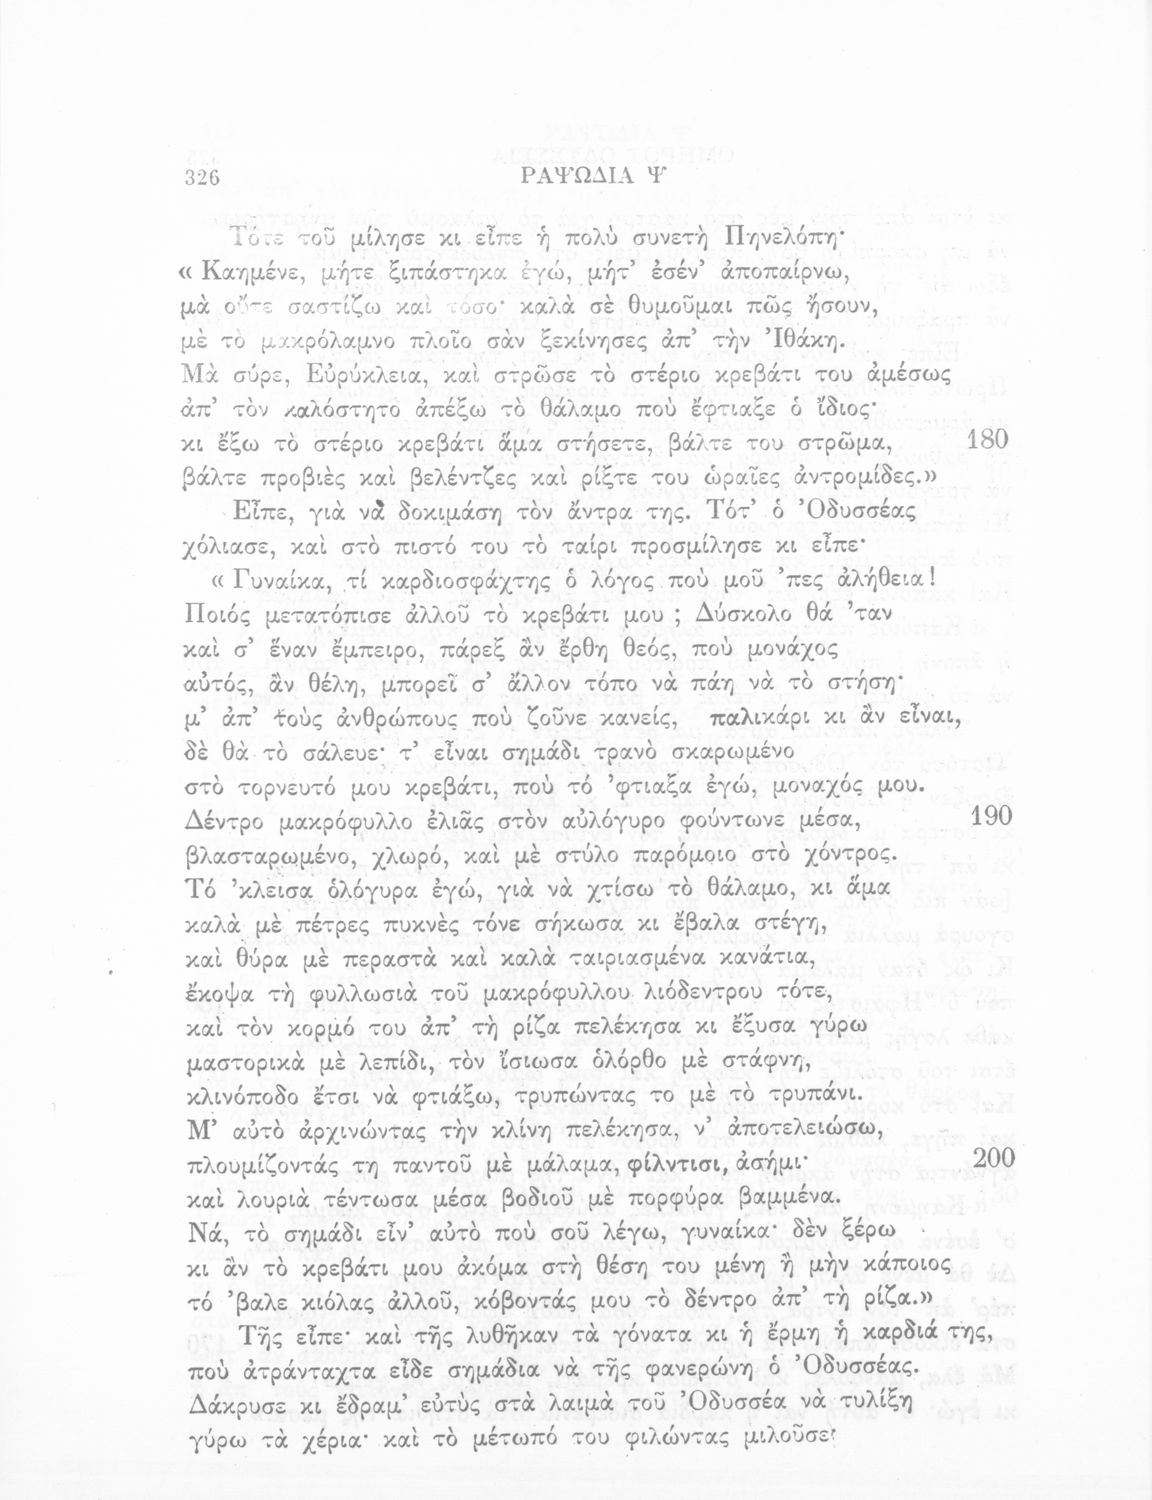 326 ΡΑΨΩΔΙΑ Ψ
Τότε τοῦ μίλησε κι εἶπε ἡ πολὺ συνετὴ Πηνελόπη·
« Καημένε, μήτε ξιπάστηκα ἐγώ, μήτ’ ἐσέν’ ἀποπαίρνω,
μὰ οὔτε σαστίζω καὶ τόσο· καλὰ σὲ θυμοῦμαι πῶς ἤσουν,
μὲ τὸ μακρόλαμνο πλοῖο σὰν ξεκίνησες ἀπ’ τὴν Ἰθάκη.
Μὰ σύρε, Εὐρύκλεια, καὶ στρῶσε τὸ στέριο κρεβάτι του ἀμέσως
ἀπ’ τὸν καλόστητο ἀπέξω τὸ θάλαμο ποὺ ἔφτιαξε ὁ ἴδιος·
κι ἔξω τὸ στέριο κρεβάτι ἅμα στήσετε, βάλτε του στρῶμα, 180
βάλτε προβιὲς καὶ βελέντζες καὶ ρίξτε του ὡραῖες ἀντρομίδες.»
Εἶπε, γιὰ νὰ δοκιμάση τὸν ἄντρα της. Τότ’ ὁ Ὀδυσσέας
χόλιασε, καὶ στὸ πιστό του τὸ ταίρι προσμίλησε κι εἶπε·
« Γυναίκα, τί καρδιοσφάχτης ὁ λόγος ποὺ μοῦ ’πες ἀλήθεια!
Ποιός μετατόπισε ἀλλοῦ τὸ κρεβάτι μου ; Δύσκολο θά ’ταν
καὶ σ’ ἕναν ἔμπειρο, πάρεξ ἂν ἔρθη θεός, ποὺ μονάχος
αὐτός, ἂν θέλη, μπορεῖ σ’ ἄλλον τόπο νὰ πάη νὰ τὸ στήση·
μ’ ἀπ’ τοὺς ἀνθρώπους ποὺ ζοῦνε κανείς, παλικάρι κι ἂν εἶναι,
δὲ θὰ τὸ σάλευε· τ’ εἶναι σημάδι τρανὸ σκαρωμένο
στὸ τορνευτό μου κρεβάτι, ποὺ τό ’φτιαξα ἐγώ, μοναχός μου.
Δέντρο μακρόφυλλο ἐλιᾶς στὸν αὐλόγυρο φούντωνε μέσα, 190
βλασταρωμένο, χλωρό, καὶ μὲ στύλο παρόμοιο στὸ χόντρος.
Τό ’κλεισα ὁλόγυρα ἐγώ, γιὰ νὰ χτίσω τὸ θάλαμο, κι ἅμα
καλὰ μὲ πέτρες πυκνὲς τόνε σήκωσα κι ἔβαλα στέγη,
καὶ θύρα μὲ περαστὰ καὶ καλὰ ταιριασμένα κανάτια,
ἔκοψα τὴ φυλλωσιὰ τοῦ μακρόφυλλου λιόδεντρου τότε,
καὶ τὸν κορμό του ἀπ’ τὴ ρίζα πελέκησα κι ἔξυσα γύρω
μαστορικὰ μὲ λεπίδι, τὸν ἴσιωσα ὁλόρθο μὲ στάφνη,
κλινόποδο ἔτσι νὰ φτιάξω, τρυπώντας το μὲ τὸ τρυπάνι.
Μ’ αὐτὸ ἀρχινώντας τὴν κλίνη πελέκησα, ν’ ἀποτελειώσω,
πλουμίζοντάς τη παντοῦ μὲ μάλαμα, φίλντισι, ἀσήμι· 200
καὶ λουριὰ τέντωσα μέσα βοδιοῦ μὲ πορφύρα βαμμένα.
Νά, τὸ σημάδι εἶν’ αὐτὸ ποὺ σοῦ λέγω, γυναίκα· δὲν ξέρω
κι ἂν τὸ κρεβάτι μου ἀκόμα στὴ θέση του μένη ἢ μὴν κάποιος
τό ’βαλε κιόλας ἀλλοῦ, κόβοντάς μου τὸ δέντρο ἀπ’ τὴ ρίζα.»
Τῆς εἶπε· καὶ τῆς λυθῆκαν τὰ γόνατα κι ἡ ἔρμη ἡ καρδιά της,
ποὺ ἀτράνταχτα εἶδε σημάδια νὰ τῆς φανερώνη ὁ Ὀδυσσέας.
Δάκρυσε κι ἔδραμ’ εὐτὺς στὰ λαιμὰ τοῦ Ὀδυσσέα νὰ τυλίξη
γύρω τὰ χέρια· καὶ τὸ μέτωπό του φιλώντας μιλοῦσε·